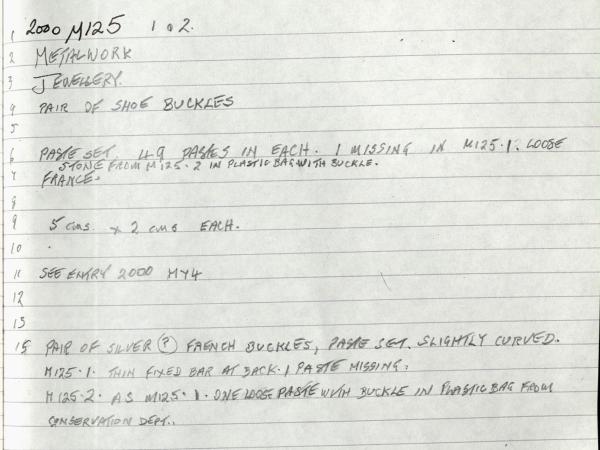 1 2000 M125 1 & 2.
2 METALWORK
3 JEWELLERY.
4 PAIR OF SHOE BUCKLES
5
6 PASTE SET. 49 PASTES IN EACH. 1 MISSING IN M125.1. LOOSE
STONE FROM M125.2 IN PLASTIC BAG WITH BUCKLE.
7 FRANCE.
8
9 5 cms. x 2 cms EACH.
10
11 SEE ENTRY 2000 MY4
12
13
15 PAIR OF SILVER (?) FRENCH BUCKLES, PASTE SET. SLIGHTLY CURVED.
M125.1. THIN FIXED BAR AT BACK. 1 PASTE MISSING.
M125.2. AS M125.1. ONE LOOSE PASTE WITH BUCKLE IN PLASTIC BAG FROM
CONSERVATION DEPT..